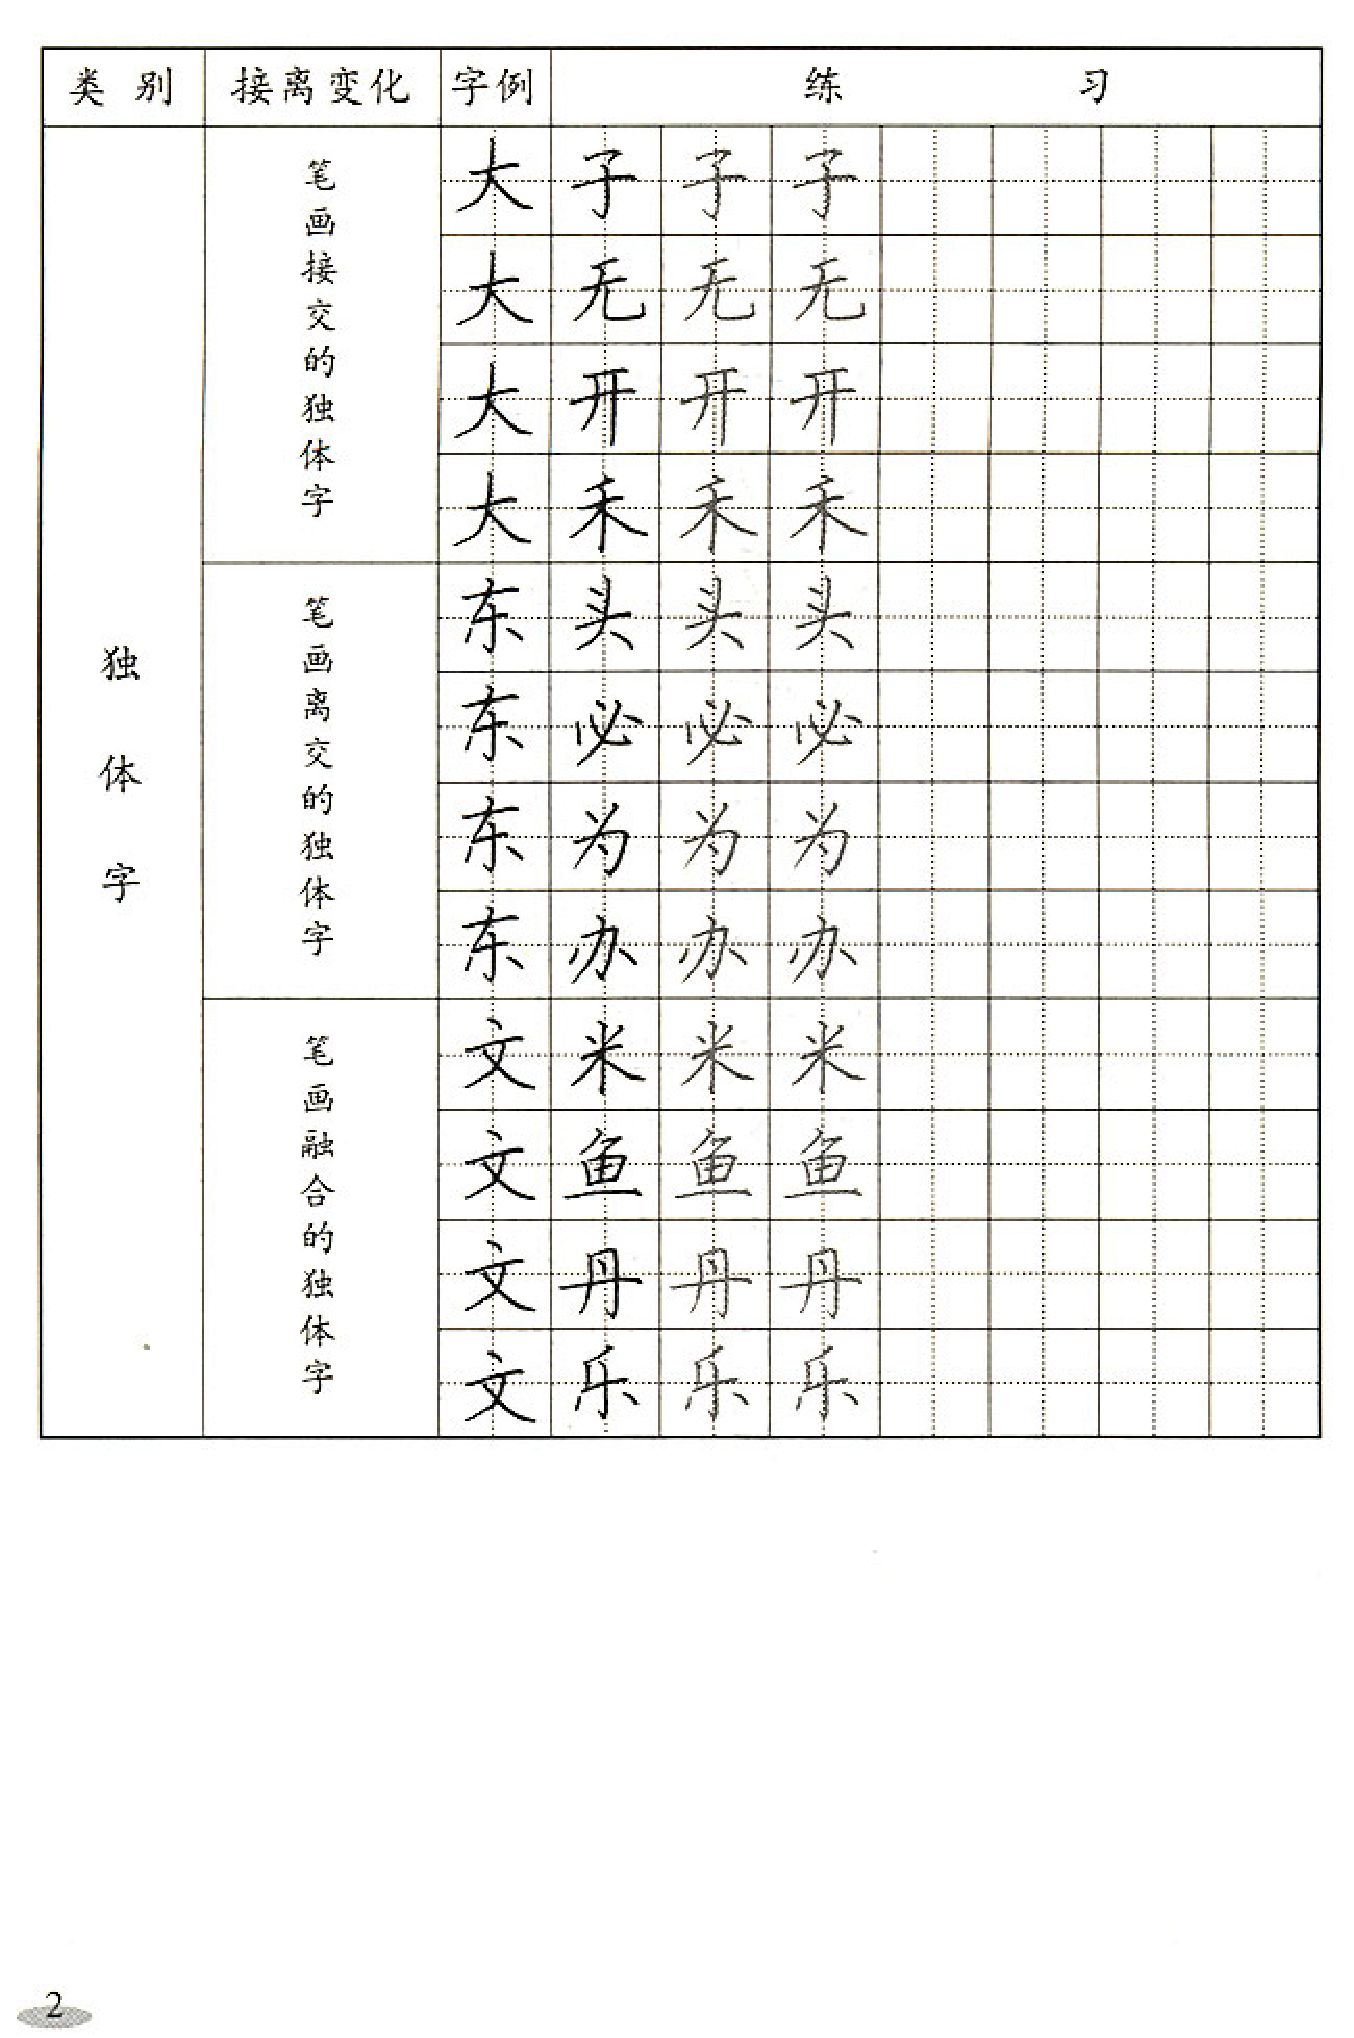 类别 接离变化 字例 练习
独体字
笔画接交的独体字
大 子 子 子
大 无 无 无
大 开 开 开
大 禾 禾 禾
笔画离交的独体字
东 头 头 头
东 必 必 必
东 为 为 为
东 办 办 办
笔画融合的独体字
文 米 米 米
文 鱼 鱼 鱼
文 丹 丹 丹
文 乐 乐 乐
2